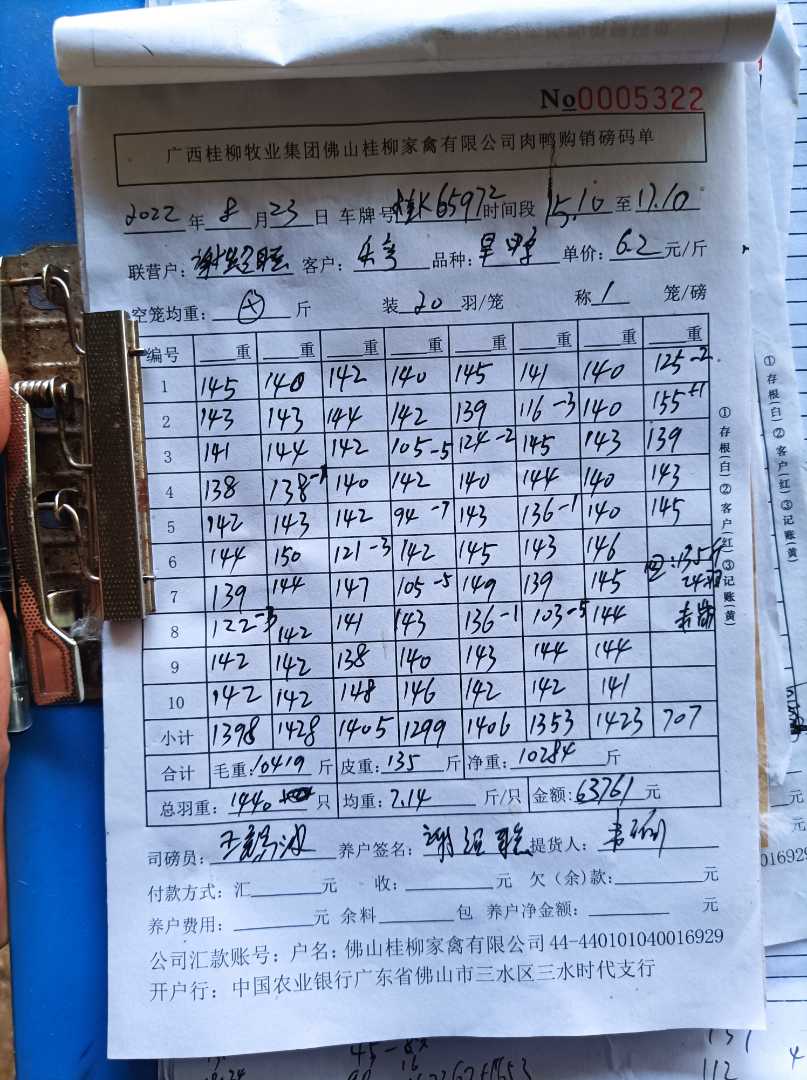 No0005322
广西桂柳牧业集团佛山桂柳家禽有限公司肉鸭购销磅码单
2022年8月23日 车牌号桂K65972时间段15.10至17.10
联营户: 客户: 品种: 单价:6.2元/斤
空笼均重: 斤 装20羽/笼 称1笼/磅
编号 重 重 重 重 重 重 重 重
1 145 140 142 140 145 141 140 125-2
2 143 143 144 142 139 116-3 140 155+1
3 141 144 142 105-5 124-2 145 143 139
4 138 138-1 140 142 140 144 140 143
5 142 143 142 94-7 143 136-1 140 145
6 144 150 121-3 142 145 143 146
7 139 144 147 105-5 149 139 145
8 122-3 142 141 143 136-1 103-5 144
9 142 142 138 140 143 144 144
10 142 142 148 146 142 142 141
小计 1398 1428 1405 1299 1406 1353 1423 707
合计 毛重:10419斤 皮重:135斤 净重:10284斤
总羽重:1440只 均重:7.14斤/只 金额:63761元
司磅员: 养户签名: 提货人:
付款方式:汇元 收:元 欠(余)款:元
养户费用:元 余料包 养户净金额:元
公司汇款账号:户名:佛山桂柳家禽有限公司44-440101040016929
开户行:中国农业银行广东省佛山市三水区三水时代支行
①存根(白)②客户(红)③记账(黄)
①存根(白)②客户(红)③记账(黄)
元
元
016929